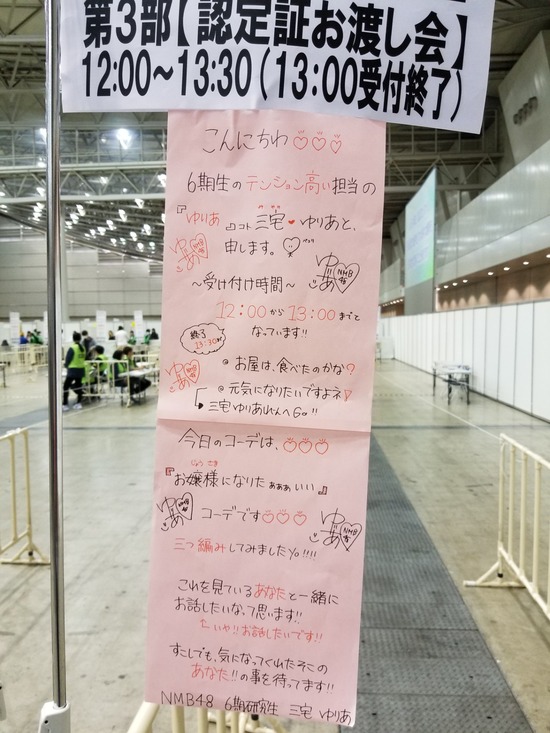 第3部【認定証お渡し会】
12:00〜13:30(13:00受付終了)
こんにちわ
6期生のテンション高い担当の
『ゆりあ』コト 三宅 ゆりあと、
申します。
NMB48
〜受け付け時間〜
12:00から13:00までと
なっています!!
終了 13:30
お昼は、食べたのかな?
元気になりたいですよネ!
三宅ゆりあれーんへGo!!
今日のコーデは、
じょうさま
『お嬢様になりたぁぁぁいい』
コーデです
三つ編みしてみましたyo!!!!
これを見ているあなたと一緒に
お話したいなって思います!!
←いや!!お話したいです!!
すこしでも、気になってくれたそこの
あなた!!の事を待ってます!!
NMB48 6期研究生 三宅 ゆりあ